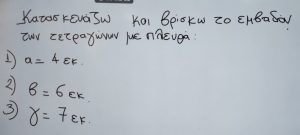 Κατασκευάζω και βρίσκω το εμβαδόν
των τετραγώνων με πλευρά:
1) α = 4 εκ.
2) β = 6 εκ.
3) γ = 7 εκ.